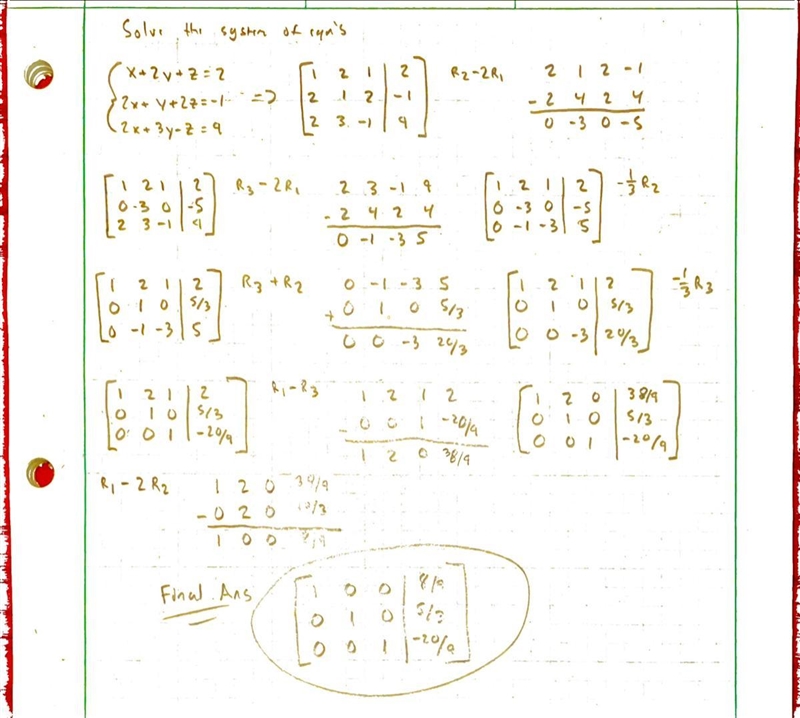 Solve the system of eqn's
x+2y+z=2
2x+y+2z=-1 =>
2x+3y-z=9
1 2 1 | 2
2 1 2 | -1
2 3 -1 | 9
R2-2R1
2 1 2 -1
- 2 4 2 4
0 -3 0 -5
1 2 1 | 2
0 -3 0 | -5
2 3 -1 | 9
R3-2R1
2 3 -1 9
- 2 4 2 4
0 -1 -3 5
1 2 1 | 2
0 -3 0 | -5
0 -1 -3 | 5
-1/3 R2
1 2 1 | 2
0 1 0 | 5/3
0 -1 -3 | 5
R3+R2
0 -1 -3 5
+ 0 1 0 5/3
0 0 -3 20/3
1 2 1 | 2
0 1 0 | 5/3
0 0 -3 | 20/3
-1/3 R3
1 2 1 | 2
0 1 0 | 5/3
0 0 1 | -20/9
R1-R3
1 2 1 2
- 0 0 1 -20/9
1 2 0 38/9
1 2 0 | 38/9
0 1 0 | 5/3
0 0 1 | -20/9
R1-2R2
1 2 0 38/9
- 0 2 0 10/3
1 0 0 8/9
Final Ans
1 0 0 | 8/9
0 1 0 | 5/3
0 0 1 | -20/9